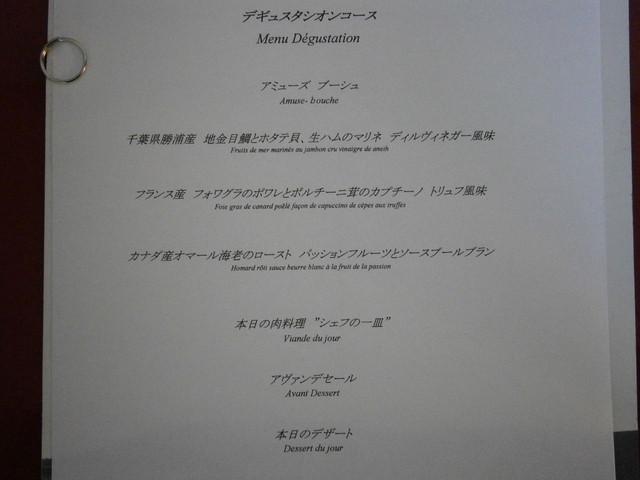 デギュスタシオンコース
Menu Dégustation
アミューズ ブーシュ
Amuse- bouche
千葉県勝浦産 地金目鯛とホタテ貝、生ハムのマリネ ディルヴィネガー風味
Fruits de mer marinés au jambon cru vinaigre de aneth
フランス産 フォワグラのポワレとポルチーニ茸のカプチーノ トリュフ風味
Foie gras de canard poêlé façon de capuccino de cèpes aux truffes
カナダ産オマール海老のロースト パッションフルーツとソースブールブラン
Homard rôti sauce beurre blanc à la fruit de la passion
本日の肉料理 ”シェフの一皿”
Viande du jour
アヴァンデセール
Avant Dessert
本日のデザート
Dessert du jour